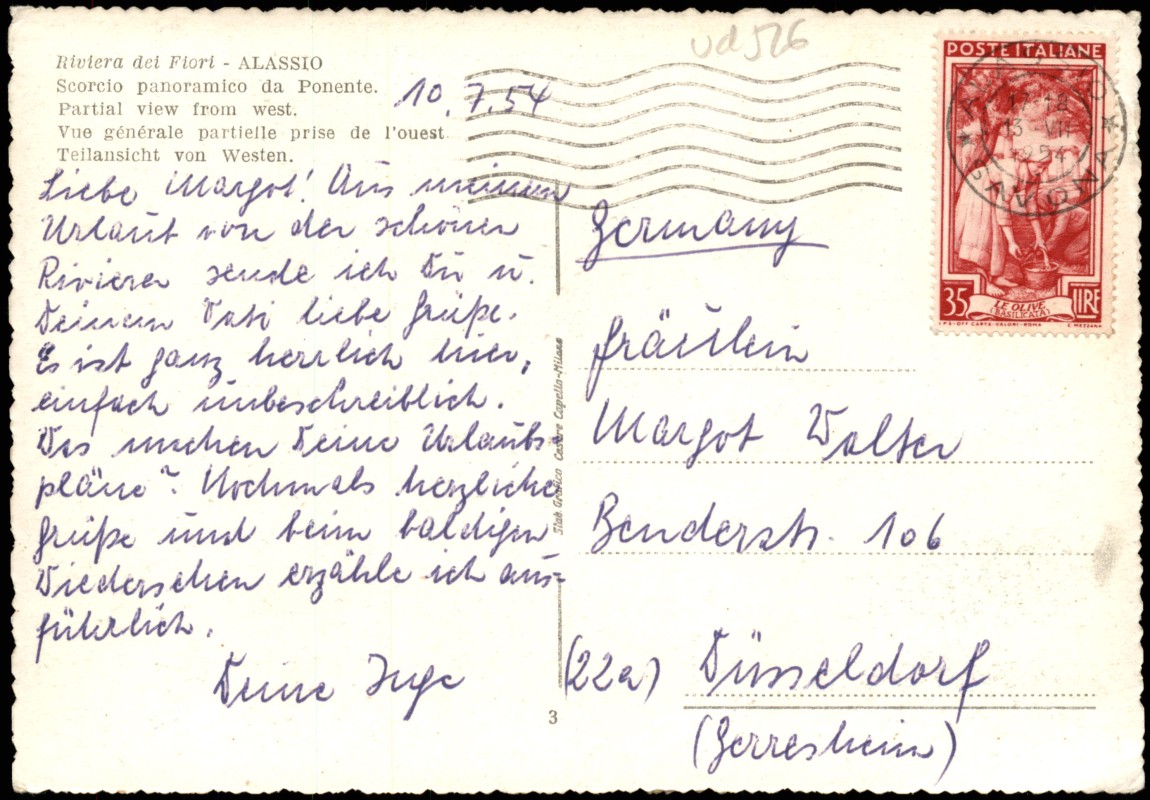 Riviera dei Fiori - ALASSIO
Scorcio panoramico da Ponente.
Partial view from west.
Vue générale partielle prise de l'ouest
Teilansicht von Westen.
10.7.54
Liebe Margot! Aus meinem
Urlaub von der schönen
Riviera sende ich Dir u.
Deinem Vati liebe Grüße.
Es ist ganz herrlich hier,
einfach unbeschreiblich.
Was machen Deine Urlaubs
pläne? Nochmals herzliche
Grüße und beim baldigen
Wiedersehen erzähle ich aus-
führlich.
Deine Inge
3
Stab. Grafico Cesare Capello-Milano
Vd 526
POSTE ITALIANE
35 LIRE
LE OLIVE
(BASILICATA)
I.P.S.-OFF. CARTE-VALORI-ROMA C. MEZZANA
17-18
13 VII
1954
Germany
Fräulein
Margot Walter
Benderstr. 106
(22a) Düsseldorf
(Gerresheim)